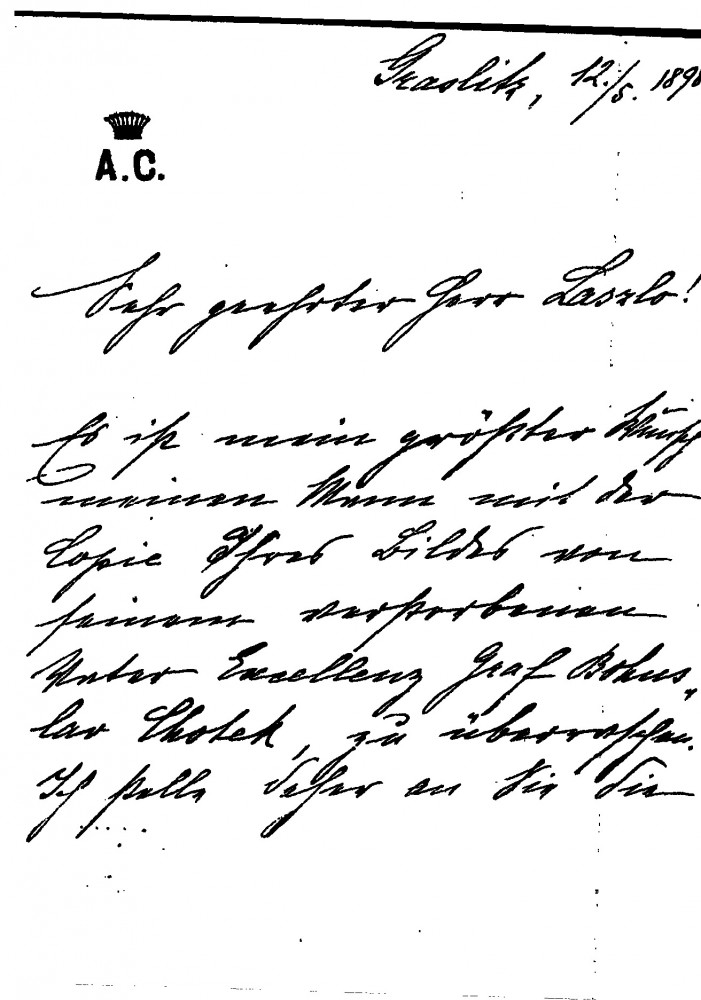 Graslitz, 12./5. 189
A.C.
Sehr geehrter Herr Laszlo!
Es ist mein größter Wunsch
meinen Mann mit der
Copie Ihres Bildes von
seinem verstorbenen
Vater Excellenz Graf Bohus„
lav Chotek, zu überraschen.
Ich stelle daher an Sie die